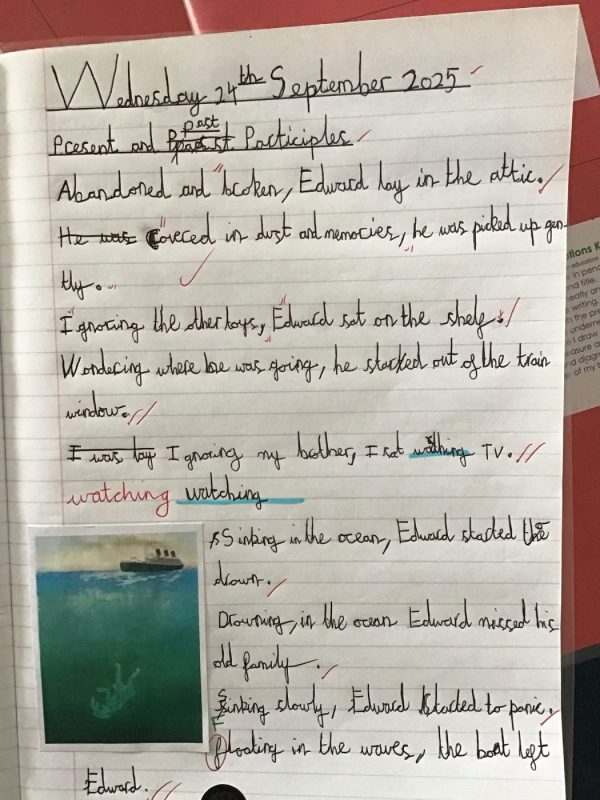 Wednesday 24th September 2025
Present and past Participles
Abandoned and broken, Edward lay in the attic.
He was Covered in dust and memories, he was picked up gen
tly.
Ignoring the other toys, Edward sat on the shelf.
Wondering where he was going, he starked out of the train
window.
I was lay I gnoring my bother, I sat wathing TV.
watching watching
Sinking in the ocean, Edward started the
drown.
Drowning, in the ocean Edward missed his
old family.
Sinking slowly, Edward started to panic.
Floating in the waves, the boat left
Edward.